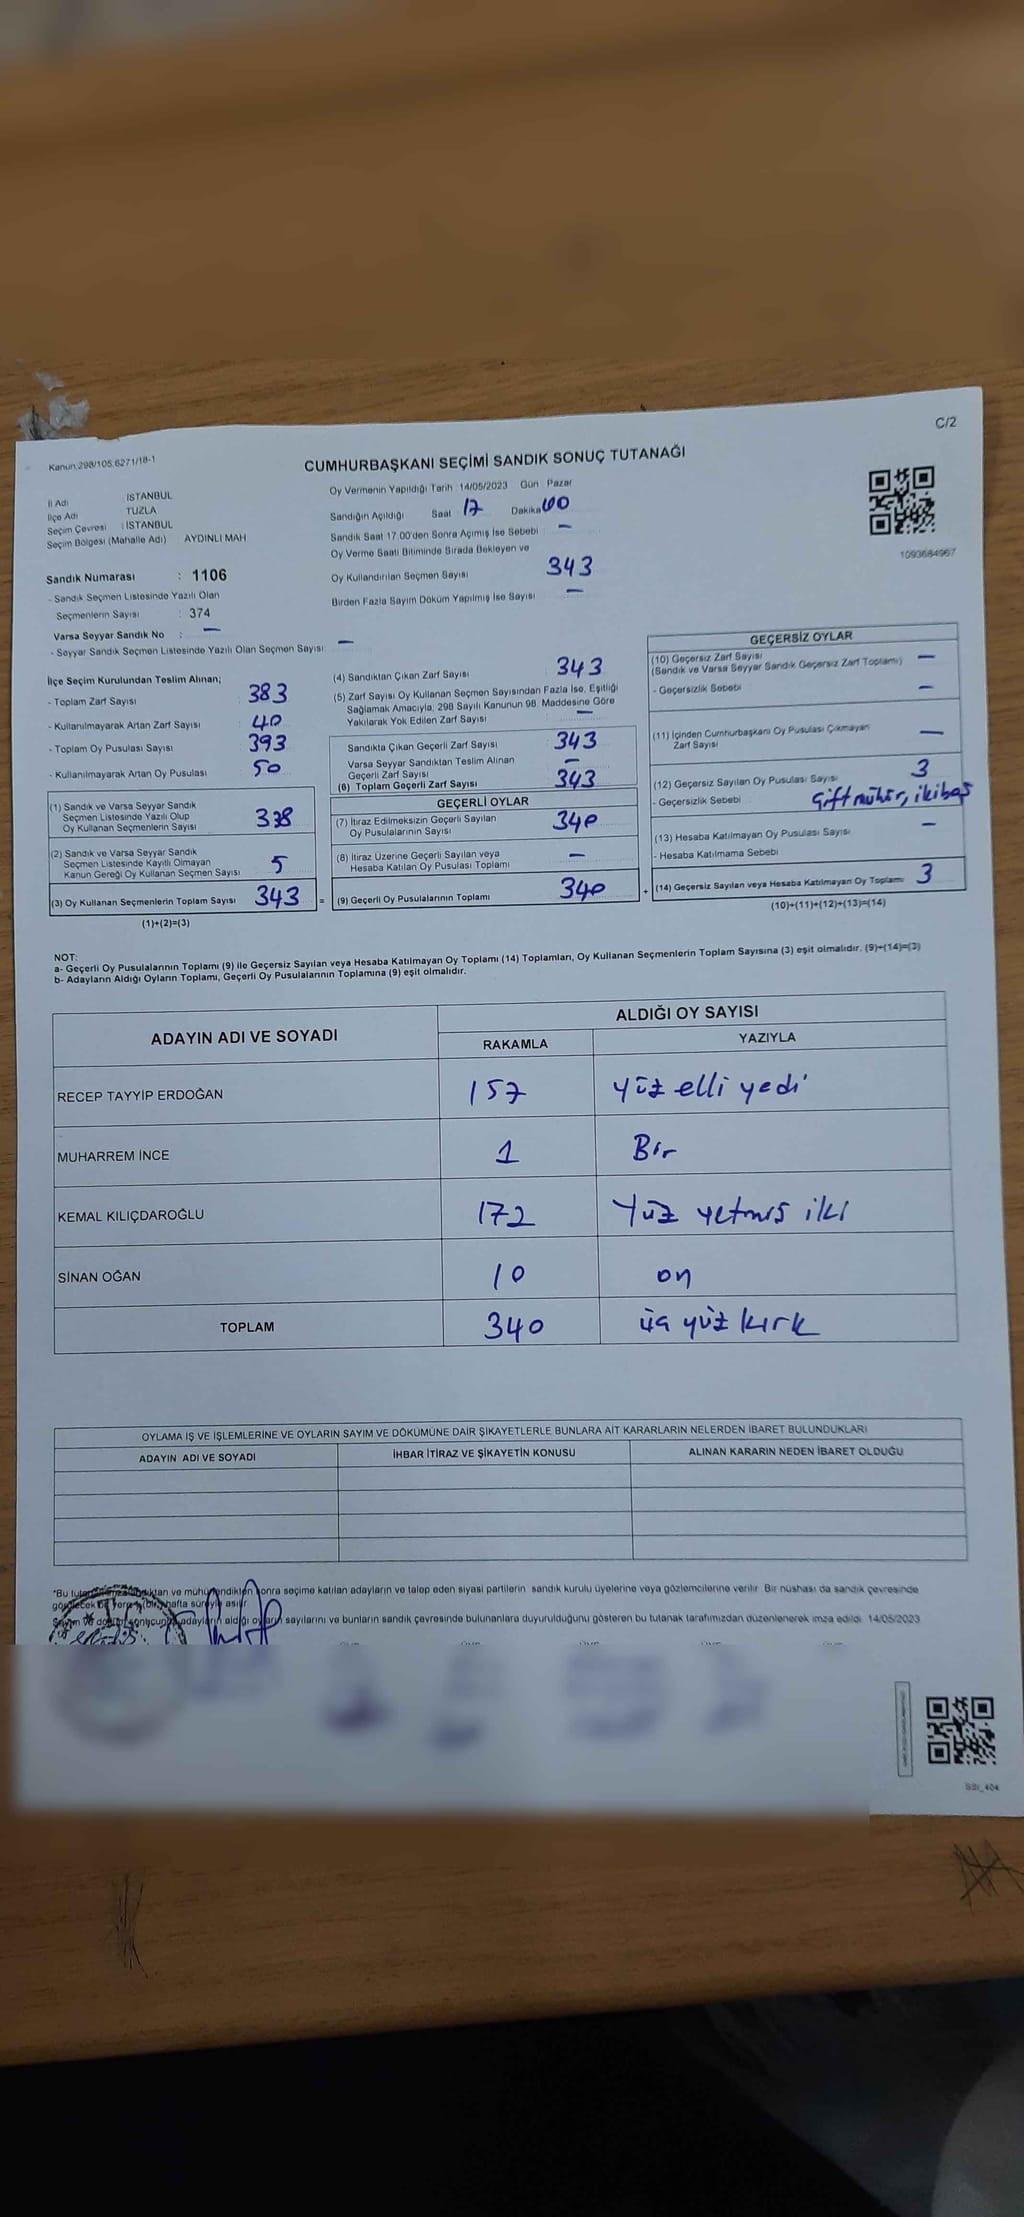 C/2
Kanun:298/105,6271/18-1
CUMHURBAŞKANI SEÇİMİ SANDIK SONUÇ TUTANAĞI
İl Adı : İSTANBUL
İlçe Adı : TUZLA
Seçim Çevresi : İSTANBUL
Seçim Bölgesi (Mahalle Adı) AYDINLI MAH
Sandık Numarası : 1106
- Sandık Seçmen Listesinde Yazılı Olan
Seçmenlerin Sayısı : 374
Varsa Seyyar Sandık No : —
- Seyyar Sandık Seçmen Listesinde Yazılı Olan Seçmen Sayısı: —
Oy Vermenin Yapıldığı Tarih :14/05/2023 Gün Pazar
Sandığın Açıldığı Saat 17 Dakika 00
Sandık Saat 17:00'den Sonra Açımış İse Sebebi —
Oy Verme Saati Bitiminde Sırada Bekleyen ve
Oy Kullandırılan Seçmen Sayısı 343
Birden Fazla Sayım Döküm Yapılmış İse Sayısı —
1093684967
İlçe Seçim Kurulundan Teslim Alınan;
- Toplam Zarf Sayısı 383
- Kullanılmayarak Artan Zarf Sayısı 40
- Toplam Oy Pusulası Sayısı 393
- Kullanılmayarak Artan Oy Pusulası 50
(1) Sandık ve Varsa Seyyar Sandık
Seçmen Listesinde Yazılı Olup
Oy Kullanan Seçmenlerin Sayısı 338
(2) Sandık ve Varsa Seyyar Sandık
Seçmen Listesinde Kayıtlı Olmayan
Kanun Gereği Oy Kullanan Seçmen Sayısı 5
(3) Oy Kullanan Seçmenlerin Toplam Sayısı 343 =
(1)+(2)=(3)
(4) Sandıktan Çıkan Zarf Sayısı 343
(5) Zarf Sayısı Oy Kullanan Seçmen Sayısından Fazla İse, Eşitliği
Sağlamak Amacıyla, 298 Sayılı Kanunun 98. Maddesine Göre
Yakılarak Yok Edilen Zarf Sayısı —
Sandıkta Çıkan Geçerli Zarf Sayısı 343
Varsa Seyyar Sandıktan Teslim Alınan
Geçerli Zarf Sayısı —
(6) Toplam Geçerli Zarf Sayısı 343
GEÇERLİ OYLAR
(7) İtiraz Edilmeksizin Geçerli Sayılan
Oy Pusulalarının Sayısı 340
(8) İtiraz Üzerine Geçerli Sayılan veya
Hesaba Katılan Oy Pusulası Toplamı —
(9) Geçerli Oy Pusulalarının Toplamı 340 +
GEÇERSİZ OYLAR
(10) Geçersiz Zarf Sayısı —
(Sandık ve Varsa Seyyar Sandık Geçersiz Zarf Toplamı)
- Geçersizlik Sebebi —
(11) İçinden Cumhurbaşkanı Oy Pusulası Çıkmayan
Zarf Sayısı —
(12) Geçersiz Sayılan Oy Pusulası Sayısı 3
- Geçersizlik Sebebi Çift mühür, iki baş
(13) Hesaba Katılmayan Oy Pusulası Sayısı —
- Hesaba Katılmama Sebebi
(14) Geçersiz Sayılan veya Hesaba Katılmayan Oy Toplamı 3
(10)+(11)+(12)+(13)=(14)
NOT:
a- Geçerli Oy Pusulalarının Toplamı (9) ile Geçersiz Sayılan veya Hesaba Katılmayan Oy Toplamı (14) Toplamları, Oy Kullanan Seçmenlerin Toplam Sayısına (3) eşit olmalıdır. (9)+(14)=(3)
b- Adayların Aldığı Oyların Toplamı, Geçerli Oy Pusulalarının Toplamına (9) eşit olmalıdır.
ADAYIN ADI VE SOYADI ALDIĞI OY SAYISI
RAKAMLA YAZIYLA
RECEP TAYYİP ERDOĞAN 157 yüz elli yedi
MUHARREM İNCE 1 Bir
KEMAL KILIÇDAROĞLU 172 Yüz yetmiş iki
SİNAN OĞAN 10 on
TOPLAM 340 üç yüz kırk
OYLAMA İŞ VE İŞLEMLERİNE VE OYLARIN SAYIM VE DÖKÜMÜNE DAİR ŞİKAYETLERLE BUNLARA AİT KARARLARIN NELERDEN İBARET BULUNDUKLARI
ADAYIN ADI VE SOYADI İHBAR İTİRAZ VE ŞİKAYETİN KONUSU ALINAN KARARIN NEDEN İBARET OLDUĞU
seçime katılan adayların ve talep eden siyasi partilerin sandık kurulu üyelerine veya gözlemcilerine verilir. Bir nüshası da sandık çevresinde
hafta süreyle asılır.
adayların aldığı oyların sayılarını ve bunların sandık çevresinde bulunanlara duyurulduğunu gösteren bu tutanak tarafımızdan düzenlenerek imza edildi. 14/05/2023